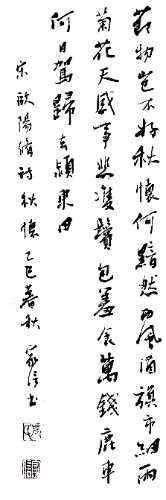 節物豈不好秋懷何黯然西風酒旗市細雨
菊花天感事悲雙鬢包羞食萬錢鹿車
何日駕歸去潁東田
宋歐陽修詩秋懷乙巳暮秋家書